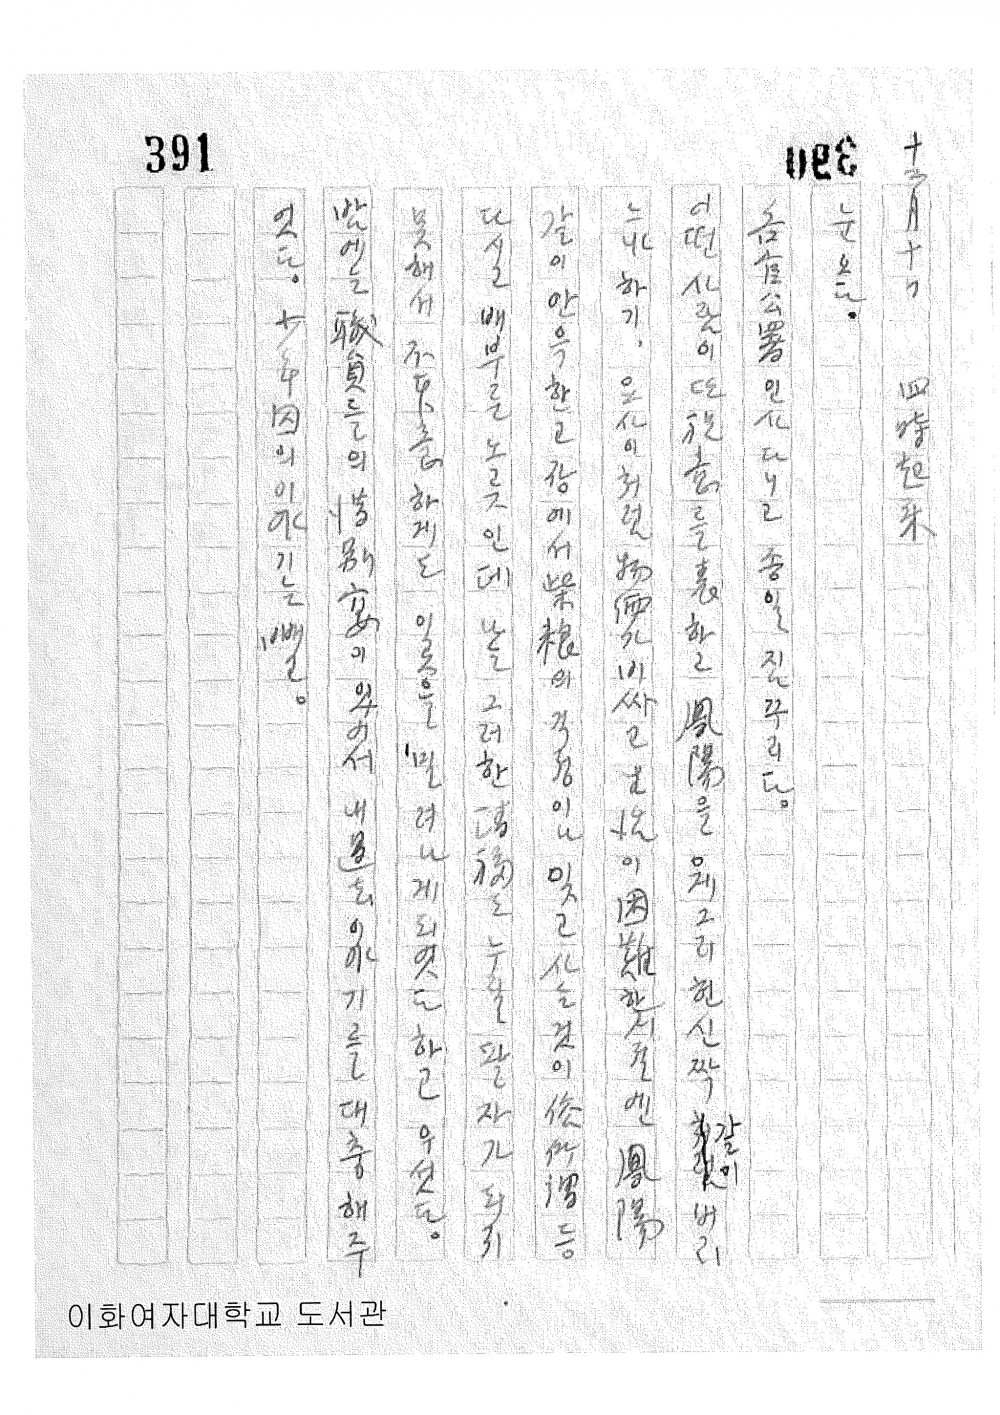 391
390
十二月十六 四時起床
눈오다。
各官公署 인사 다니고 종일 짐꾸리다。
어떤 사람이 또 를 表하고 鳳陽을 웨 그리 헌신짝같이 버리
누냐 하기, 요사이처럼 物價 비싸고 이 困難한 시절엔 鳳陽
같이 안윽한 고장에서 柴粮의 걱정이나 잊고 사는 것이 俗所謂 등
다실 배부른 노릇인데 나는 그러한 도 누릴 팔자가 되지
못해서 하게도 일곳을 밀려나게 되엿다 하고 우섯다。
밤에는 職員들의 惜別宴이 있어서 내 過去 이야기를 대충 해주
엇다。 十年 因의 이야기는 빼고。
이화여자대학교 도서관